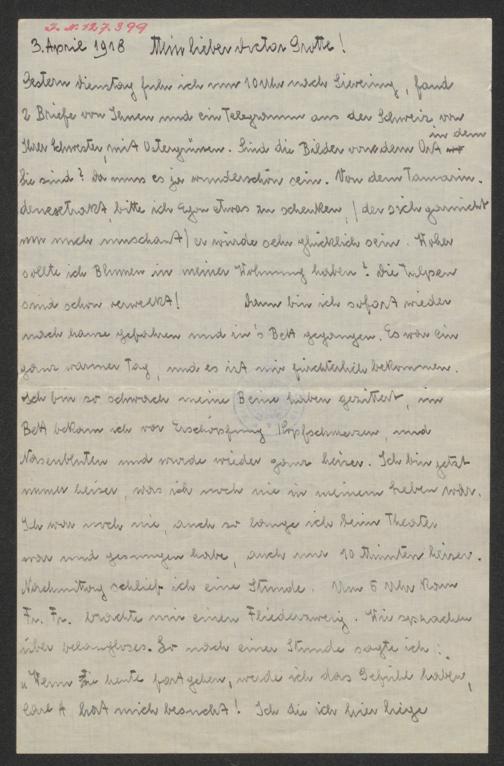 J. N. 127.399
3. April 1918 Mein lieber Doctor Grotte!
Gestern Dienstag fuhr ich um 10 Uhr nach Sievering, fand
2 Briefe von Ihnen und ein Telegramm aus der Schweiz von
Ihrer Schwester, mit Ostergrüssen. Sind die Bilder von dem Ort in dem
Sie sind? Da muss es ja wunderschön sein. Von dem Tamarin-
denextrakt, bitte ich Egon etwas zu schenken, (der sich garnicht
um mich umschaut) er würde sehr glücklich sein. Woher
sollte ich Blumen in meiner Wohnung haben? Die Tulpen
sind schon verwelkt! Dann bin ich sofort wieder
nach hause gefahren und in's Bett gegangen. Es war ein
ganz warmer Tag, und es ist mir fürchterlich bekommen.
Ich bin so schwach meine Beine haben gezittert, im
Bett bekam ich vor Erschöpfung Kopfschmerzen, und
Nasenbluten und wurde wieder ganz heiser. Ich bin jetzt
immer heiser, was ich noch nie in meinem Leben war.
Ich war noch nie, auch so lange ich beim Theater
war und gesungen habe, auch nur 10 Minuten heiser.
Nachmittag schlief ich eine Stunde. Um 5 Uhr kam
Fr. Fr. brachte mir einen Fliederzweig. Wir sprachen
über belangloses. So nach einer Stunde sagte ich:
"Wenn Sie heute fortgehen, werde ich das Gefühl haben,
hat mich besucht! Ich die ich hier liege